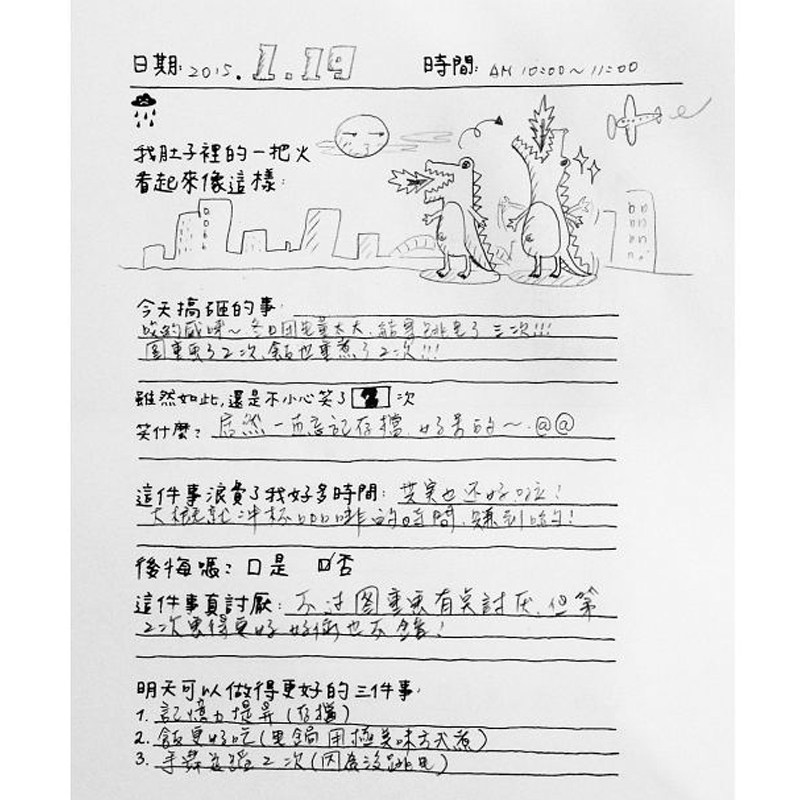 日期: 2015. 1.19 時間: AM 10:00～11:00
我肚子裡的一把火
看起來像這樣:
今天搞砸的事:
冬日用電量太大、結果跳電了三次!!!
圖重畫了2次、飯也重煮了2次!!!
雖然如此,還是不小心笑了 2 次
笑什麼? 居然一直忘記存檔、好累的～.@@
這件事浪費了我好多時間: 其實也还好啦!
大概就沖杯咖啡的時間、賺到
後悔嗎? 口是 ☑否
這件事真討厭: 不过圖重畫有莫討厌、但第
2次畫得更好 好像也不錯!
明天可以做得更好的三件事:
1. 記憶力提昇 (存檔)
2. 飯更好吃 (電鍋用極美味方式煮)
3. 2次 (因為沒跳電)